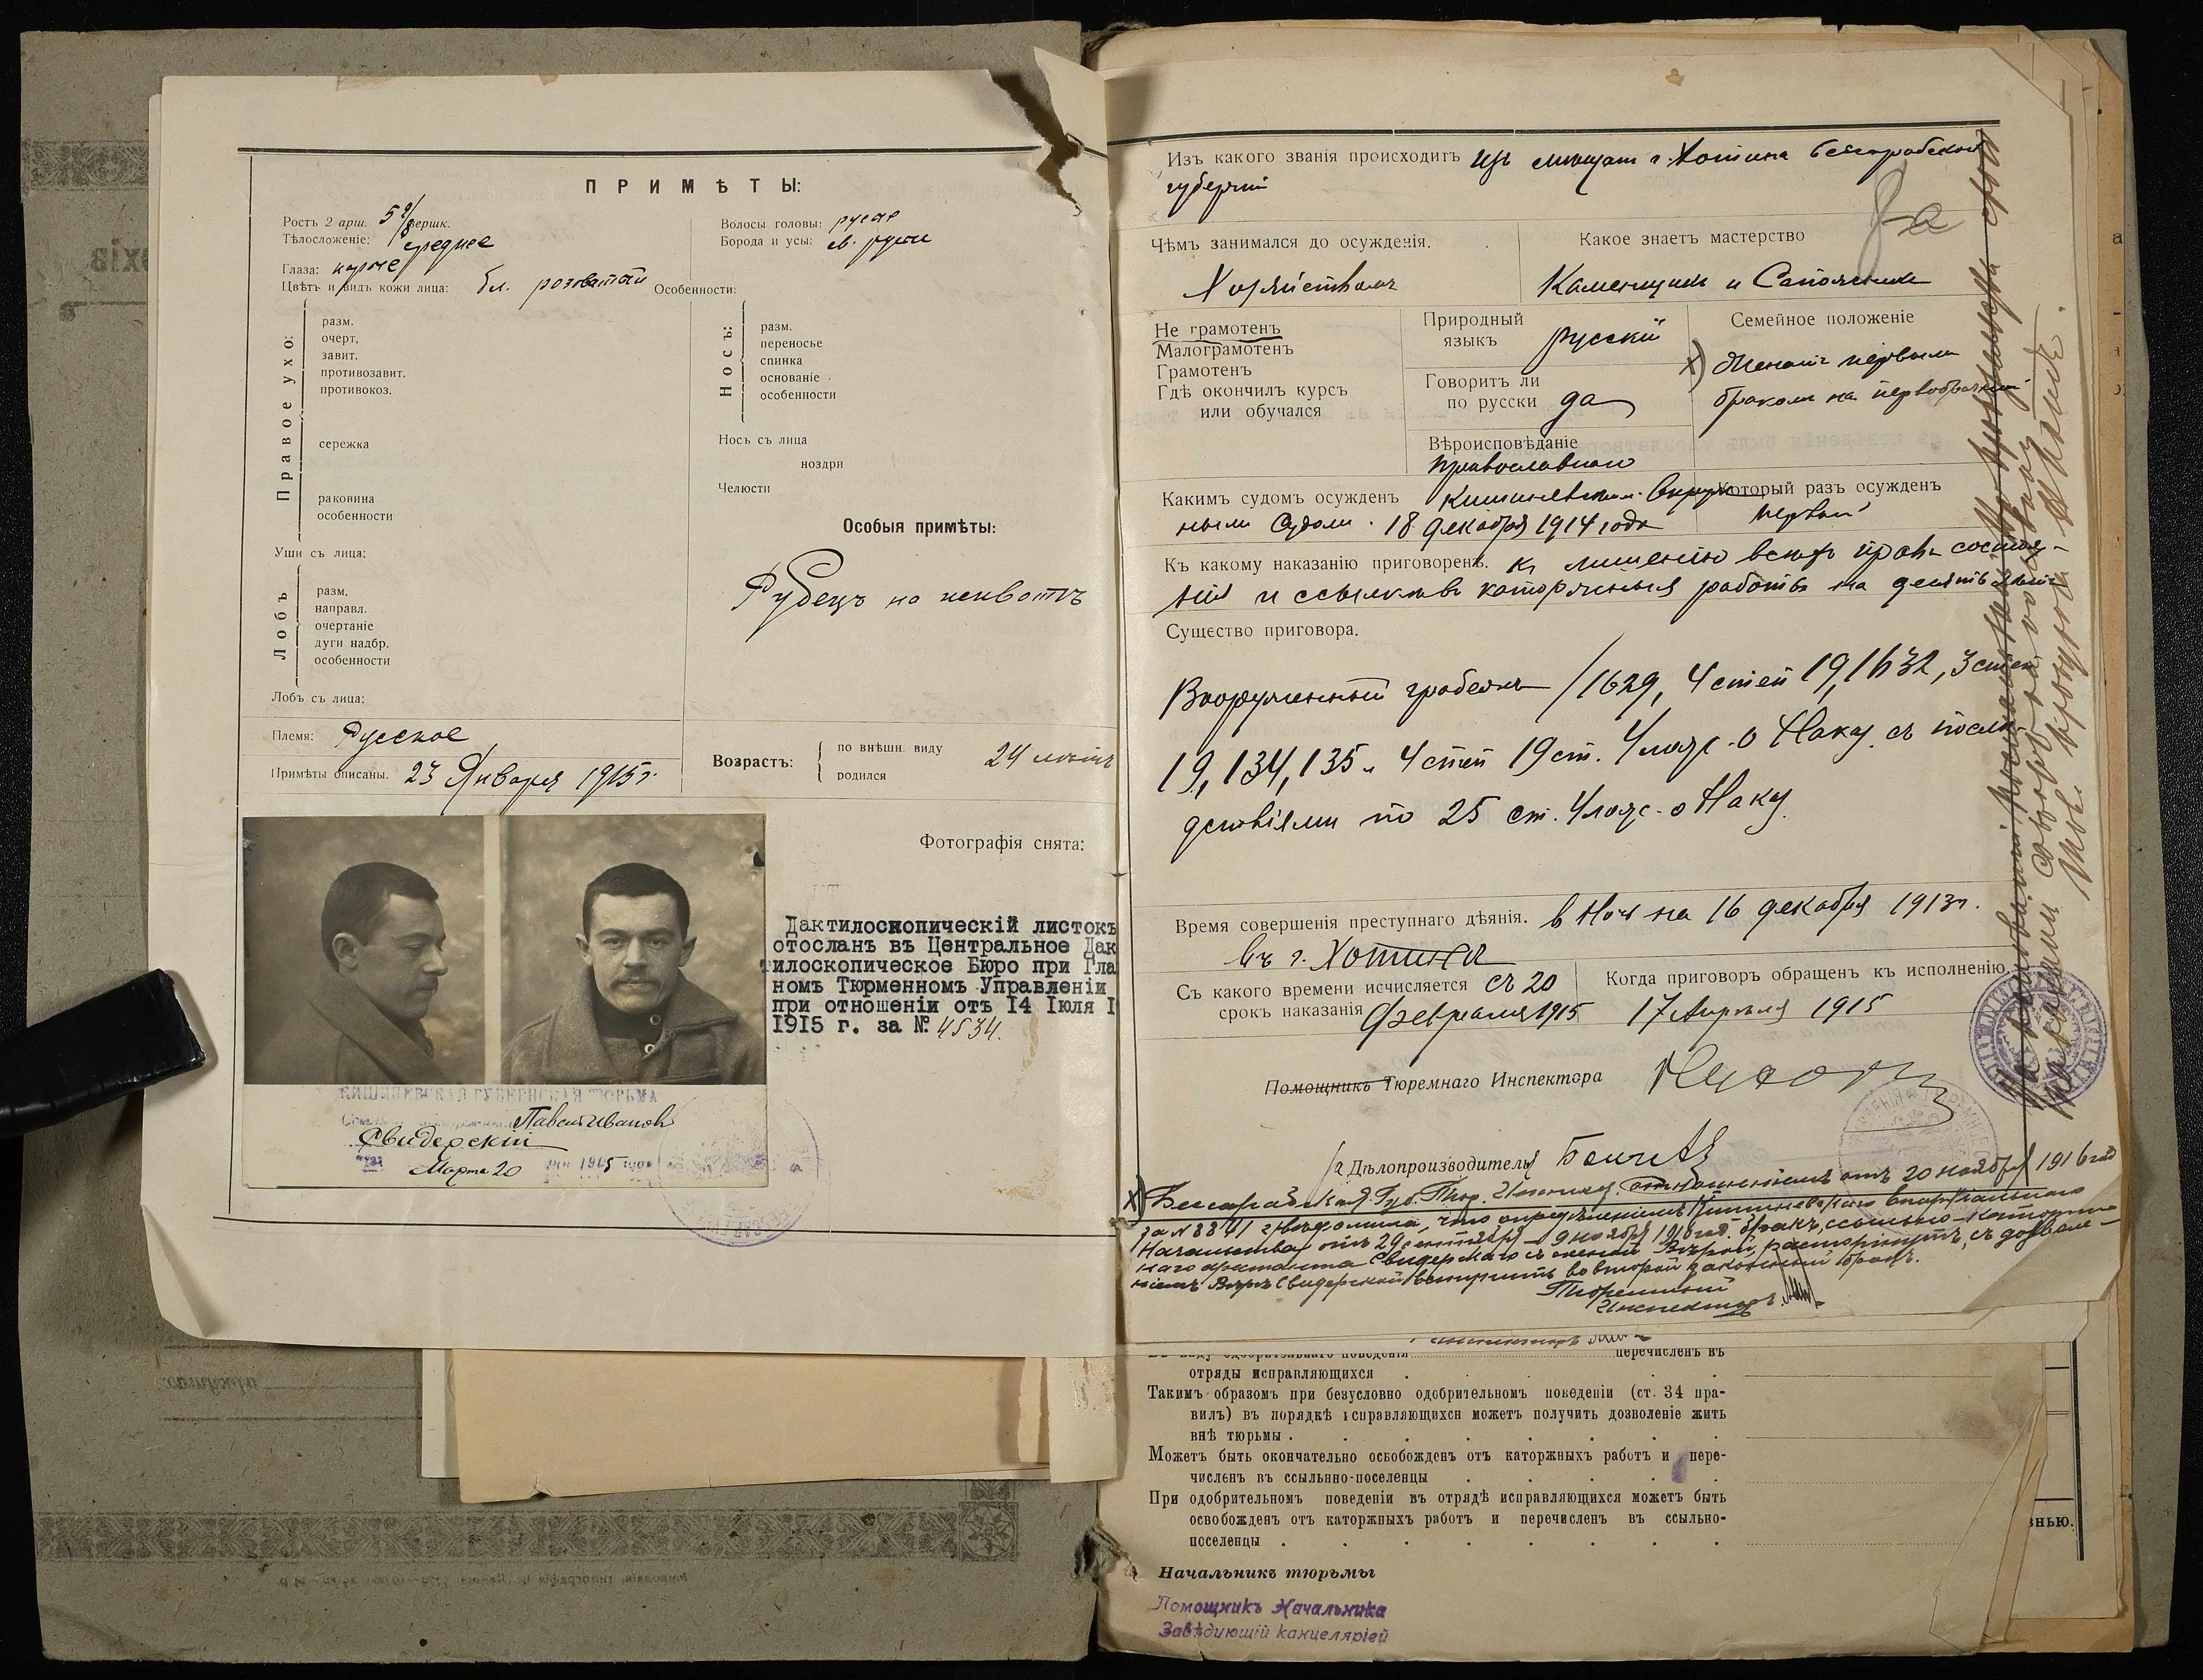 ПРИМѢТЫ:
Ростъ 2 арш. 5 2/8 вершк.
Тѣлосложеніе: среднее
Глаза: каріе
Цвѣтъ и видъ кожи лица: бл. розоватый
Волосы головы: русые
Борода и усы: св. русые
Особенности:
Правое ухо:
разм.
очерт,
завит.
противозавит.
противокоз.
сережка
раковина
особенности
Уши съ лица:
Лобъ
разм,
направл.
очертаніе
дуги надбр.
особенности
Лобъ съ лица:
Носъ:
разм.
переносье
спинка
основаніе
особенности
Носъ съ лица
ноздри
Челюсти
Особыя примѣты:
Рубецъ на животѣ
Племя: Русское
Примѣты описаны. 23 Января 1915 г.
Возрастъ:
по внѣшн. виду 24 лѣтъ
родился
Фотографія снята:
Дактилоскопическій листокъ
отосланъ въ Центральное Дак
тилоскопическое Бюро при Гла
номъ Тюрменномъ Управленіи
при отношеніи отъ 14 Іюля 1
1915 г. за № 4534.
КИШИНЕВСКАЯ ГУБЕРНСКАЯ ТЮРЬМА
Павелъ Ивановъ
Свидерскій
Марта 20 дня 1915 года
Изъ какого званія происходитъ изъ мѣщанъ г. Хотина Бессарабской
губерніи
Чѣмъ занимался до осужденія.
Хозяйствомъ
Какое знаетъ мастерство
Каменщикъ и Сапожникъ
Не грамотенъ
Малограмотенъ
Грамотенъ
Гдѣ окончилъ курсъ
или обучался
Природный
языкъ русскій
Говоритъ ли
по русски да
Вѣроисповѣданіе
православнаго
Семейное положеніе
х) Женатъ первымъ
бракомъ на первобрачной
Какимъ судомъ осужденъ Кишиневскимъ Окруж
нымъ Судомъ 18 декабря 1914 года
Который разъ осужденъ
первый
Къ какому наказанію приговоренъ. къ лишенію всѣхъ правъ состоя-
нія и ссылкѣ въ каторжныя работы на десять лѣтъ
Существо приговора.
Вооруженный грабежъ /1629, 4 степ 19, 1632, 3 степ
19, 134, 135 и 4 степ 19 ст. Улож. о Наказ. съ послѣ
дствіями по 25 ст. Улож. о Наказ.
Время совершенія преступнаго дѣянія. въ ночь на 16 декабря 1913 г.
въ г. Хотинѣ
Съ какого времени исчисляется съ 20
срокъ наказанія Февраля 1915
Когда приговоръ обращенъ къ исполненію.
17 Апрѣля 1915
Помощникъ Тюремнаго Инспектора
За Дѣлопроизводителя
х) Бессарабская Губ. Тюр. Инспекц. отношеніемъ отъ 20 ноября 1916 года
за № 8841 увѣдомила, что опредѣленіемъ Кишиневскаго Епархіальнаго
Начальства отъ 29 сентября – 9 ноября 1916 год. бракъ ссыльно-каторж
наго арестанта Свидерскаго съ женой Вѣрой, расторгнутъ, съ дозволе-
ніемъ Вѣрѣ Свидерской вступить во второй законный бракъ.
Тюремный
Инспекторъ
перечисленъ въ
отряды исправляющихся
Такимъ образомъ при безусловно одобрительномъ поведеніи (ст. 34 пра-
вилъ) въ порядкѣ исправляющихся можетъ получить дозволеніе жить
внѣ тюрьмы
Можетъ быть окончательно освобожденъ отъ каторжныхъ работъ и пере-
численъ въ ссыльно-поселенцы
При одобрительномъ поведеніи въ отрядѣ исправляющихся можетъ быть
освобожденъ отъ каторжныхъ работъ и перечисленъ въ ссыльно-
поселенцы
Начальникъ тюрьмы
Помощникъ Начальника
Завѣдующій канцеляріей
знью.